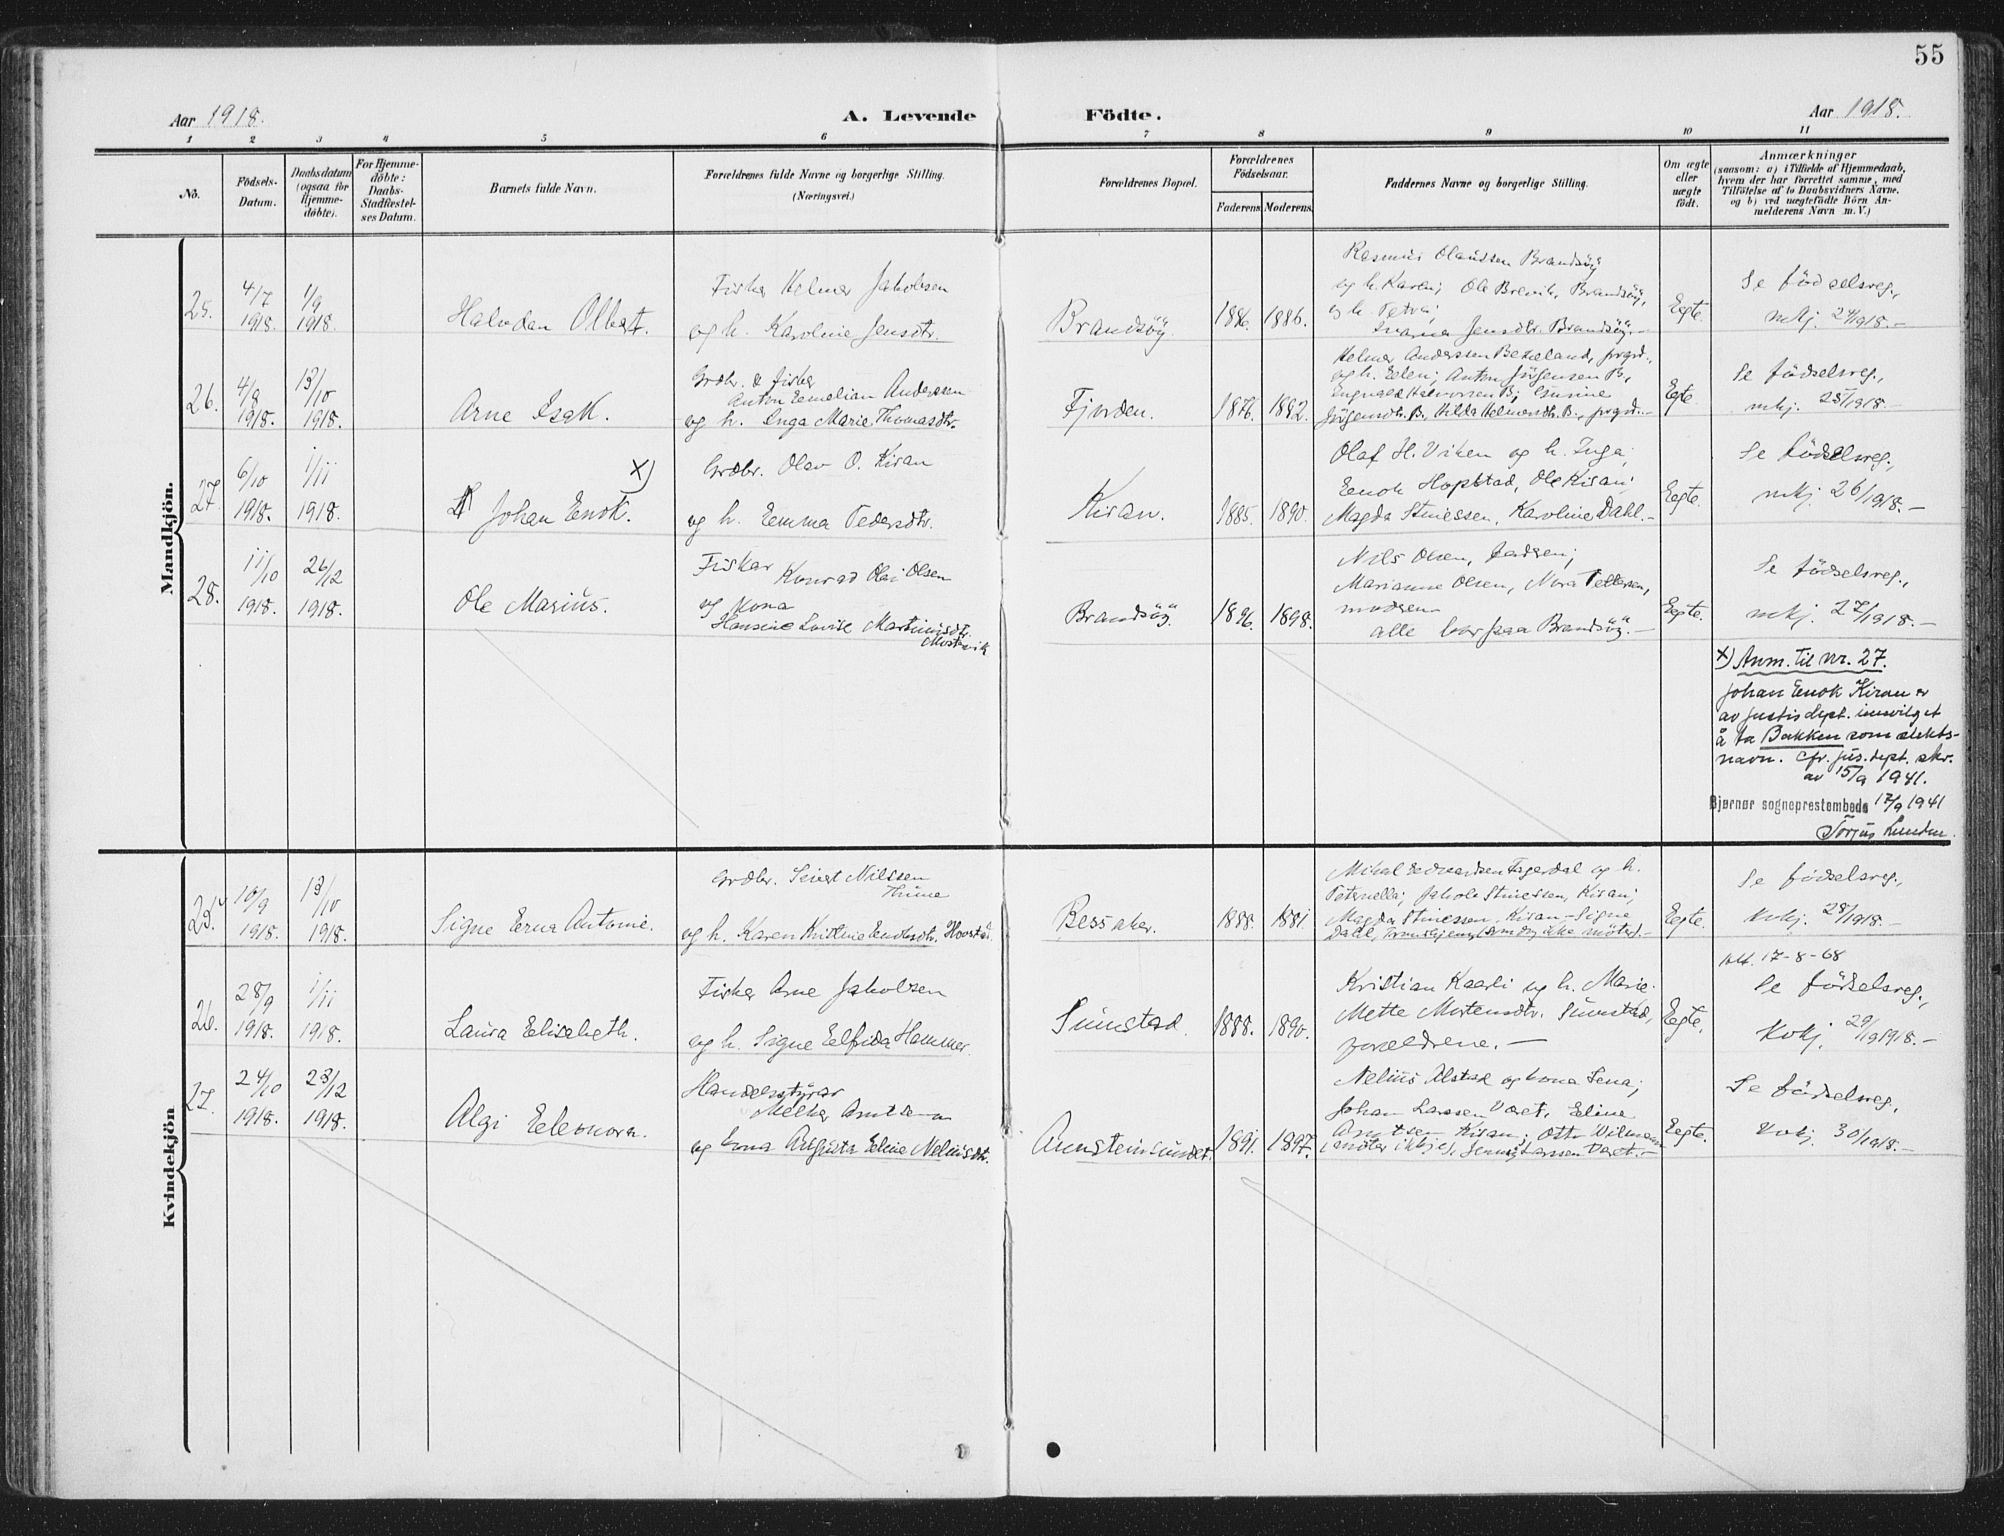 55
Aar 1918.
A. Levende Födte.
Aar 1918.
1 2 3 4 5 6 7 8 9 10 11
No.
Födsels-
Datum.
Daabsdatum
(ogsaa for
Hjemme-
döbte).
For Hjemme-
döbte:
Daabs-
Stadfæstel-
ses Datum.
Barnets fulde Navn.
Forældrenes fulde Navne og borgerlige Stilling.
(Næringsvei.)
Forældrenes Bopæl.
Forældrenes
Födselsaar.
Faderens. Moderens.
Faddernes Navne og borgerlige Stilling.
Om ægte
eller
uægte
födt.
Anmærkninger
(saasom: a) i Tilfælde af Hjemmedaab,
hvem der har forrettet samme, med
Tilföielse af to Daabsvidners Navne,
og b) ved uægtefödte Börn An-
melderens Navn m.V.)
Mandkjön.
25. 4/7 1918. 1/9 1918.
Halvdan Olbert.
Fisker Helmer Jakobsen
og h. Karoline Jensdtr.
Brandsöy. 1886. 1886.
Rasmus Olaussen Brandsöy
og h. Karen; Ole Brevik, Brandsöy,
og h. Petra;
Jensdtr. Brandsöy.-
Egte.
Se födselsreg.,
mkj. 24/1918.-
26. 4/8 1918. 13/10 1918.
Arne Isak.
Grdbr. & fisker
Anton Emelian Anderssen
og h. Inga Marie Thomasdtr.
Fjorden. 1876. 1882.
Helmer Anderssen Beskeland,
og h. Elen; Anton Jörgensen B.,
Ingvald Halvorsen B; Gusine
Jörgensdtr. B. Hilda Helmersdtr. B.,
Egte.
Se födselsreg.,
mkj. 25/1918.-
27. 6/10 1918. 1/11 1918.
x)
Johan Enok.
Grdbr. Olav O. Kiran
og h. Emma Pedersdtr.
Kiran. 1885. 1890.
Olaf H. Viken og h. Inga;
Enok Hopstad, Ole Kiran;
Magda Stinessen, Karoline Dahl.-
Egte.
Se födselsreg.,
mkj. 26/1918.-
28. 11/10 1918. 26/12 1918.
Ole Marius.
Fisker Konrad Olai Olsen
og kona
Hansine Lovise Martinusdtr.
Mostervik
Brandsöy. 1896. 1898.
Nils Olsen,
Marianne Olsen, Nora Pettersen,
modsen
alle bor paa Brandsöy.-
Egte.
Se födselsreg.,
mkj. 27/1918.-
x) Anm. til nr. 27.
Johan Enok Kiran er
av Justisdept. innvilget
å ta Bakken som slekts-
navn. Cfr. jus.dept. skr.
av 15/9 1941.
Bjørnør sogneprestembede 17/9 1941
Torjus Lunden.
Kvindekjön
25. 10/9 1918. 13/10 1918.
Signe Erna Antonie.
Grdbr. Sivert Nilssen
Thime
og h. Karen Kristine Enoksdtr. Hopstad.
Bessaker. 1888. 1881.
Mikal Edvardsen Fagerdal og h.
Peternella; Jakob Stinessen, Kiran;
Magda Stinessen, Kiran - Signe
Dahl, Trondhjem, (som dog ikke möter).-
Egte.
Se födselsreg.,
kvkj. 28/1918.-
26. 28/9 1918. 1/11 1918.
Laura Elisabeth.
Fisker Arne Jakobsen
og h. Signe Elfrida Hammer.
Sumstad. 1888. 1890.
Kristian Kaarli og h. Marie.
Mette Mortensdtr. Sumstad,
forældrene.-
Egte.
17-8-68
Se födselsreg.,
kvkj. 29/1918.-
27. 24/10 1918. 23/12 1918.
Algi Eleonora.
Handelsstyrer
Melker Arntsen
og kona Augusta Eline Neliusdtr.
Arnsteinsundet. 1891. 1897.
Nelius Alstad og kona Lena;
Johan Larssen Været, Eline
Arntsen Kiran; Otto Wilmann
(möter ikkje), Jenny Larssen Været.-
Egte.
Se födselsreg.
kvkj. 30/1918.-